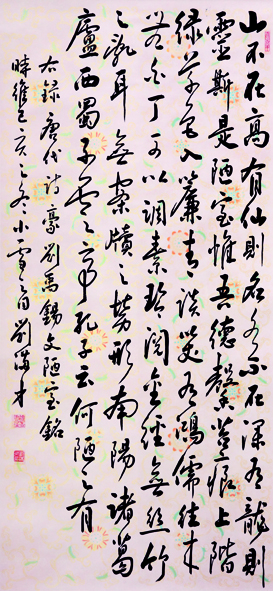 山不在高有仙則名水不在深有龍則
靈斯是陋室惟吾德馨苔痕上階
绿草色入簾青談笑有鴻儒往来
無白丁可以調素琴閲金經無丝竹
之亂耳無案牘之勞形南陽諸葛
廬西蜀子云之亭孔子云何陋之有
右録唐代詩豪劉禹錫文陋室銘
時維己亥之冬小雪之日劉才